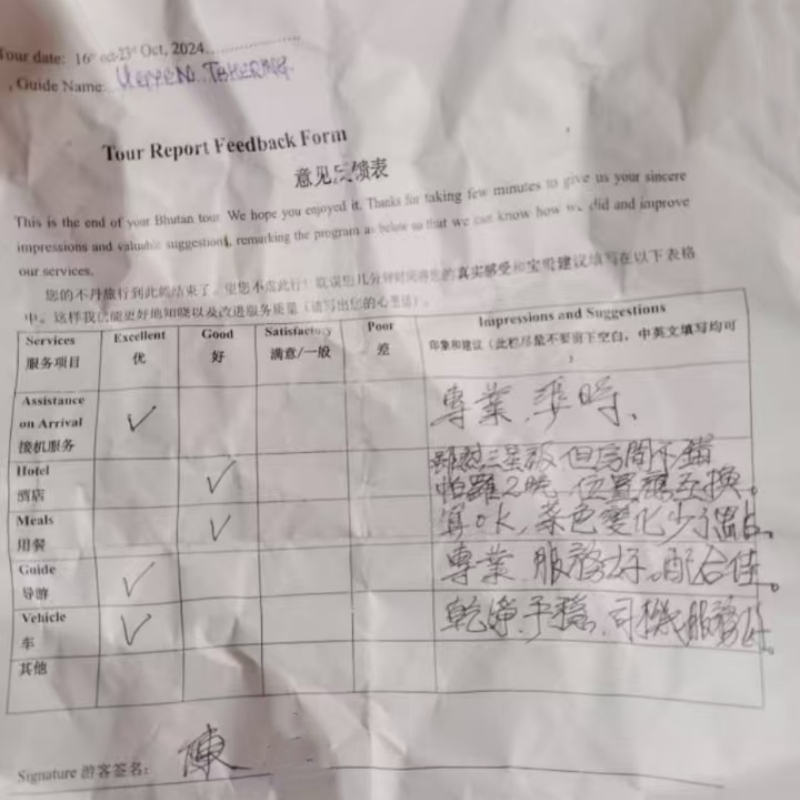 Tour date: 16th oct-23rd Oct, 2024
Guide Name:
Tour Report Feedback Form
意见反馈表
This is the end of your Bhutan tour. We hope you enjoyed it. Thanks for taking few minutes to give us your sincere
impressions and valuable suggestions, remarking the program as below so that we can know how we did and improve
our services.
您的不丹旅行到此就结束了，望您不虚此行！耽误您几分钟时间将您的真实感受和宝贵建议填写在以下表格
中。这样我们能更好地知晓以及改进服务质量（请写出您的心里话）。
Services Excellent Good Satisfactory Poor Impressions and Suggestions
服务项目 优 好 满意/一般 差 印象和建议（此栏尽量不要留下空白，中英文填写均可
）
Assistance
on Arrival
接机服务
專業、準時、
Hotel
酒店
三星級 但房間不錯
2晚 位置 互換。
Meals
用餐
OK, 菜色變化少了
Guide
导游
專業 服務好。配合佳。
Vehicle
车
乾淨 平穩、司機服務好。
其他
Signature 游客签名： 陳